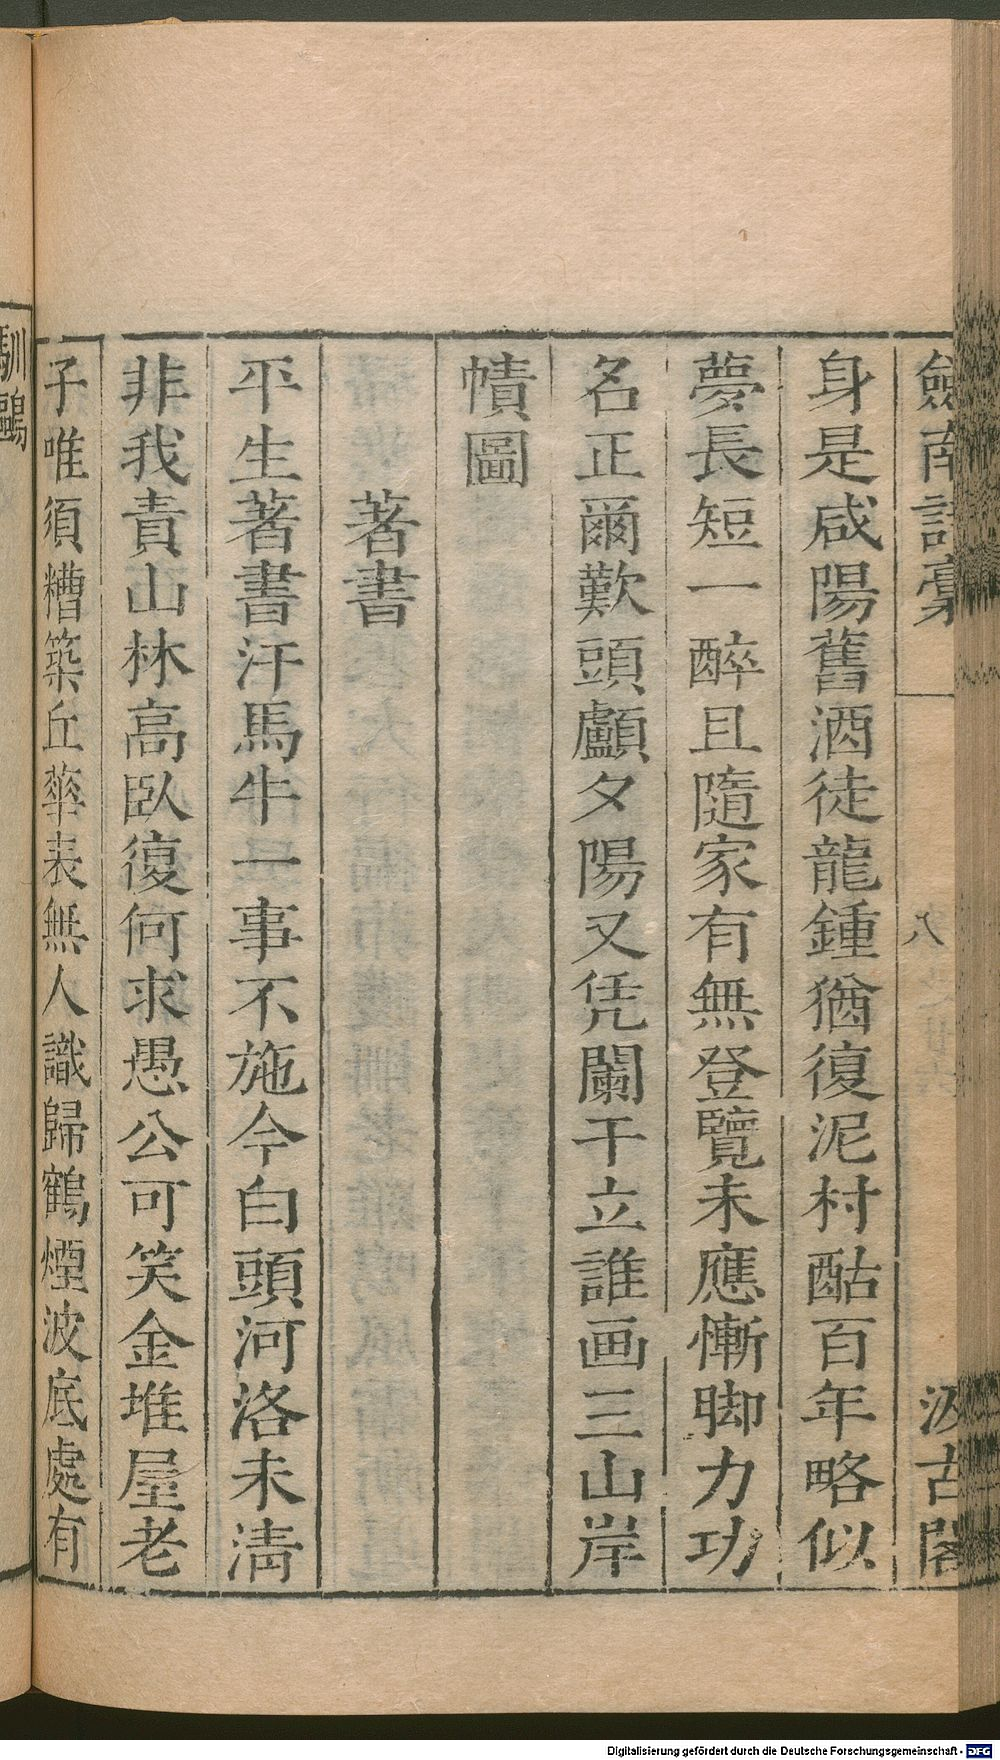 劍南詩稾 八 汲古閣
身是咸陽舊酒徒龍鍾猶復泥村酤百年略似
夢長短一醉且隨家有無登覽未應慚脚力功
名正爾歎頭顱夕陽又凭闌干立誰画三山岸
幘圖
著書
平生著書汗馬牛一事不施今白頭河洛未淸
非我責山林高臥復何求愚公可笑金堆屋老
子唯須糟築丘華表無人識歸鶴煙波底處有
馴鷗
Digitalisierung gefördert durch die Deutsche Forschungsgemeinschaft - DFG